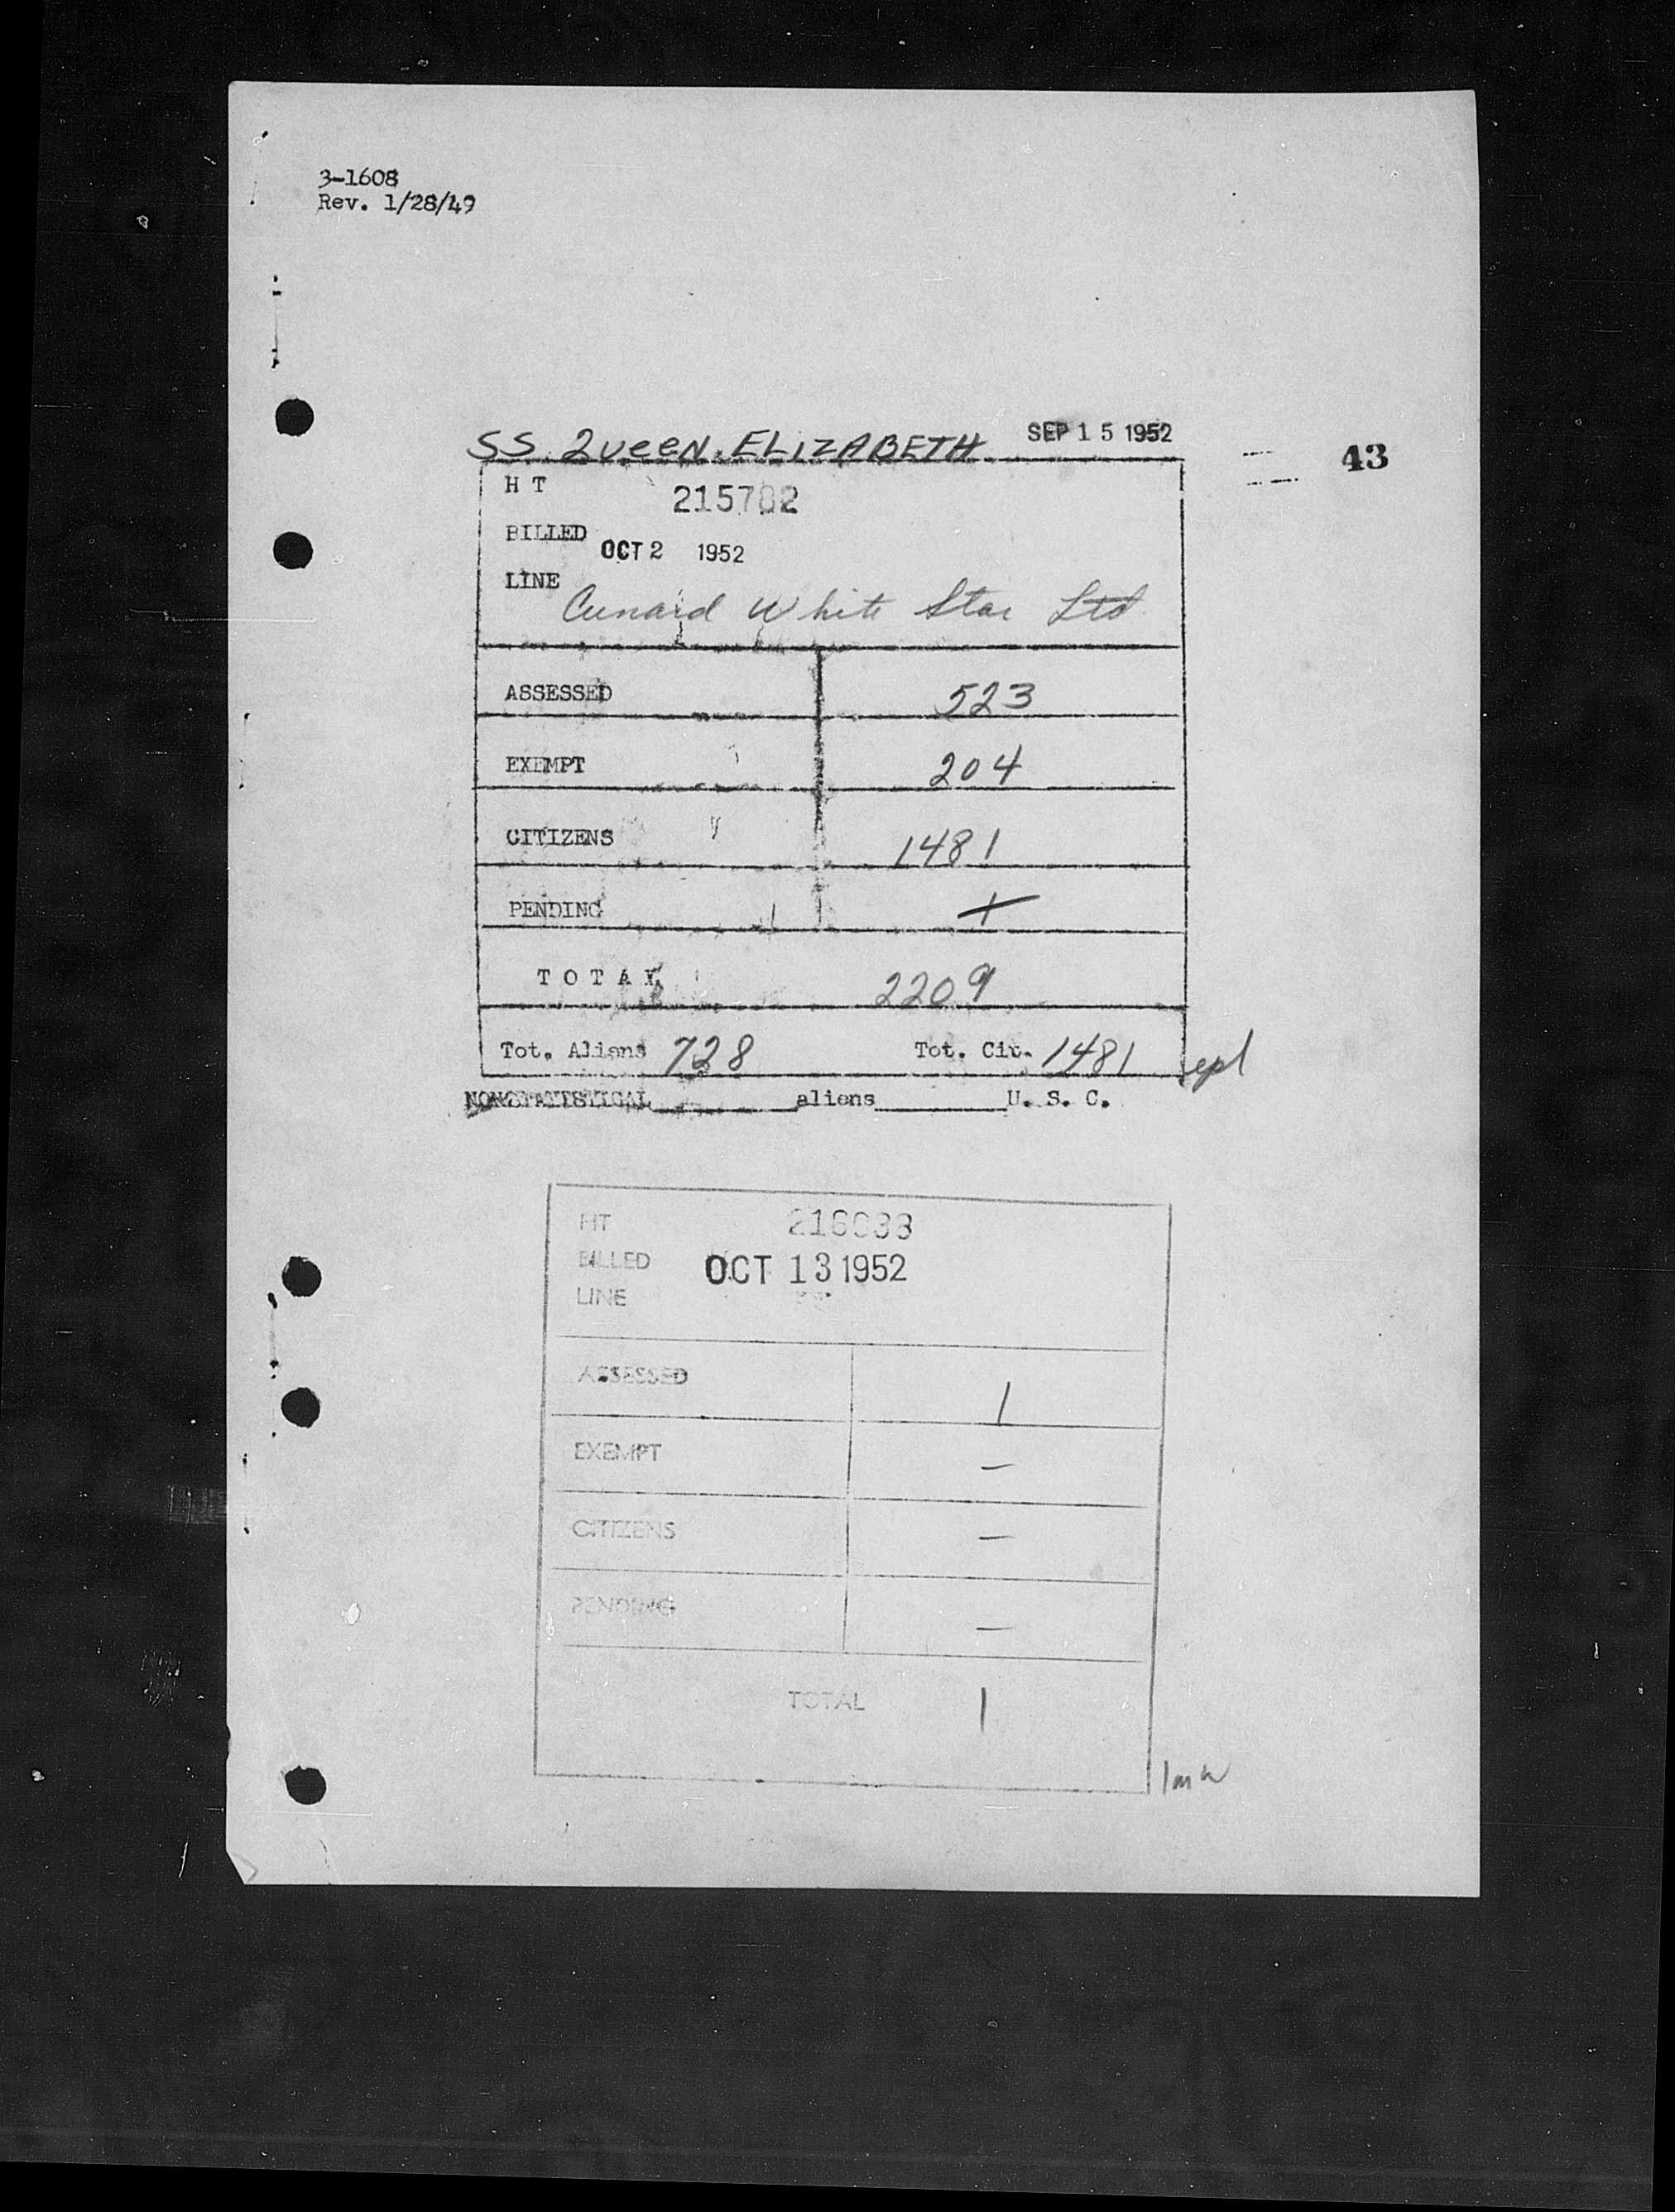 3-1608
Rev. 1/28/49
SS. QUEEN. ELIZABETH SEP 15 1952
43
H T 215702
BILLED OCT 2 1952
LINE Cunard White Star Ltd
ASSESSED 523
EXEMPT 204
CITIZENS 1481
PENDING 1
TOTAL 2209
Tot. Aliens 728 Tot. Cit. 1481 epl
NONSTATISTICAL aliens U. S. C.
HT 216033
BILLED OCT 13 1952
LINE
ASSESSED 1
EXEMPT —
CITIZENS —
PENDING —
TOTAL 1